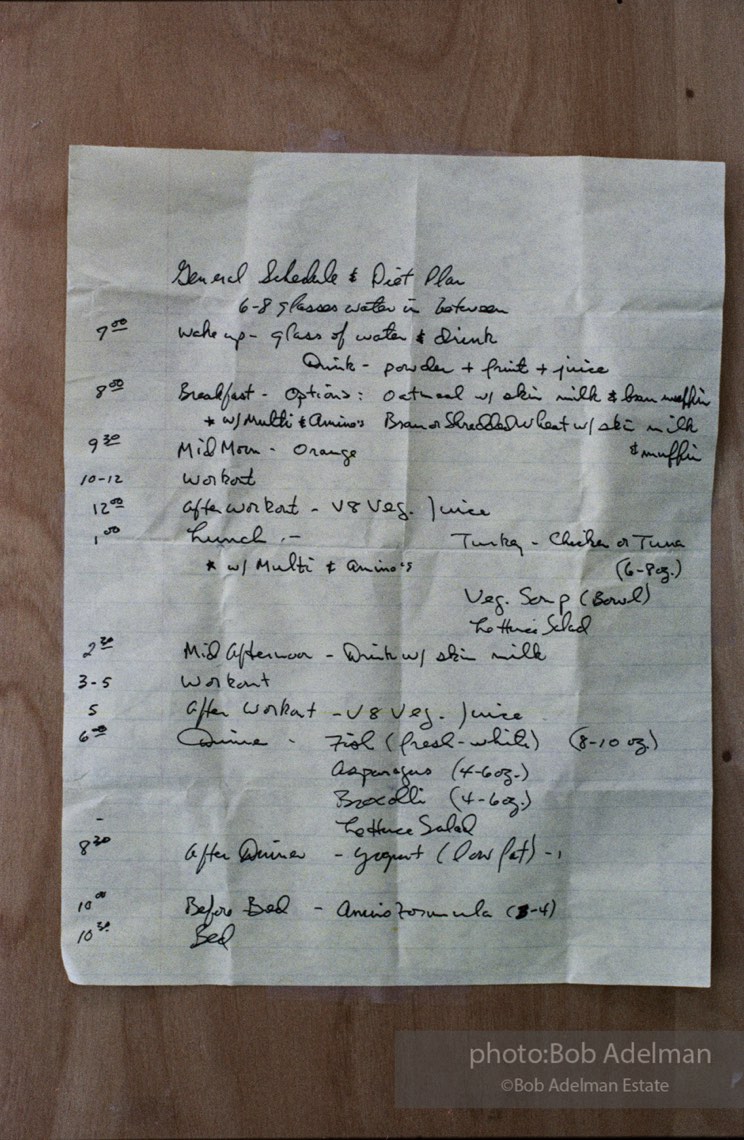 General Schedule & Diet Plan
6-8 glasses water in between
7:00 Wake up - glass of water & drink
Drink - powder + fruit + juice
8:00 Breakfast - Options: Oatmeal w/ skim milk & bran muffin
* w/ Multi & Amino's Bran or Shredded Wheat w/ skim milk
& muffin
9:30 Mid Morn - Orange
10-12 Workout
12:00 After workout - V8 Veg. Juice
1:00 Lunch - Turkey - Chicken or Tuna
* w/ Multi & Amino's (6-8oz.)
Veg. Soup (Bowl)
Lettuce Salad
2:30 Mid Afternoon - Drink w/ skim milk
3-5 Workout
5 After Workout - V8 Veg. Juice
6:00 Dinner - Fish (fresh-white) (8-10 oz.)
Asparagus (4-6oz.)
Brocolli (4-6oz.)
Lettuce Salad
8:30 After Dinner - Yogurt (low fat) -
10:00 Before Bed - Amino Formula (3-4)
10:30 Bed
photo:Bob Adelman
©Bob Adelman Estate